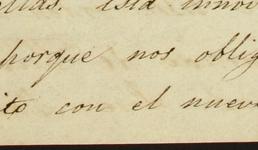 esta innov
porque nos oblig
ito con el nuevo